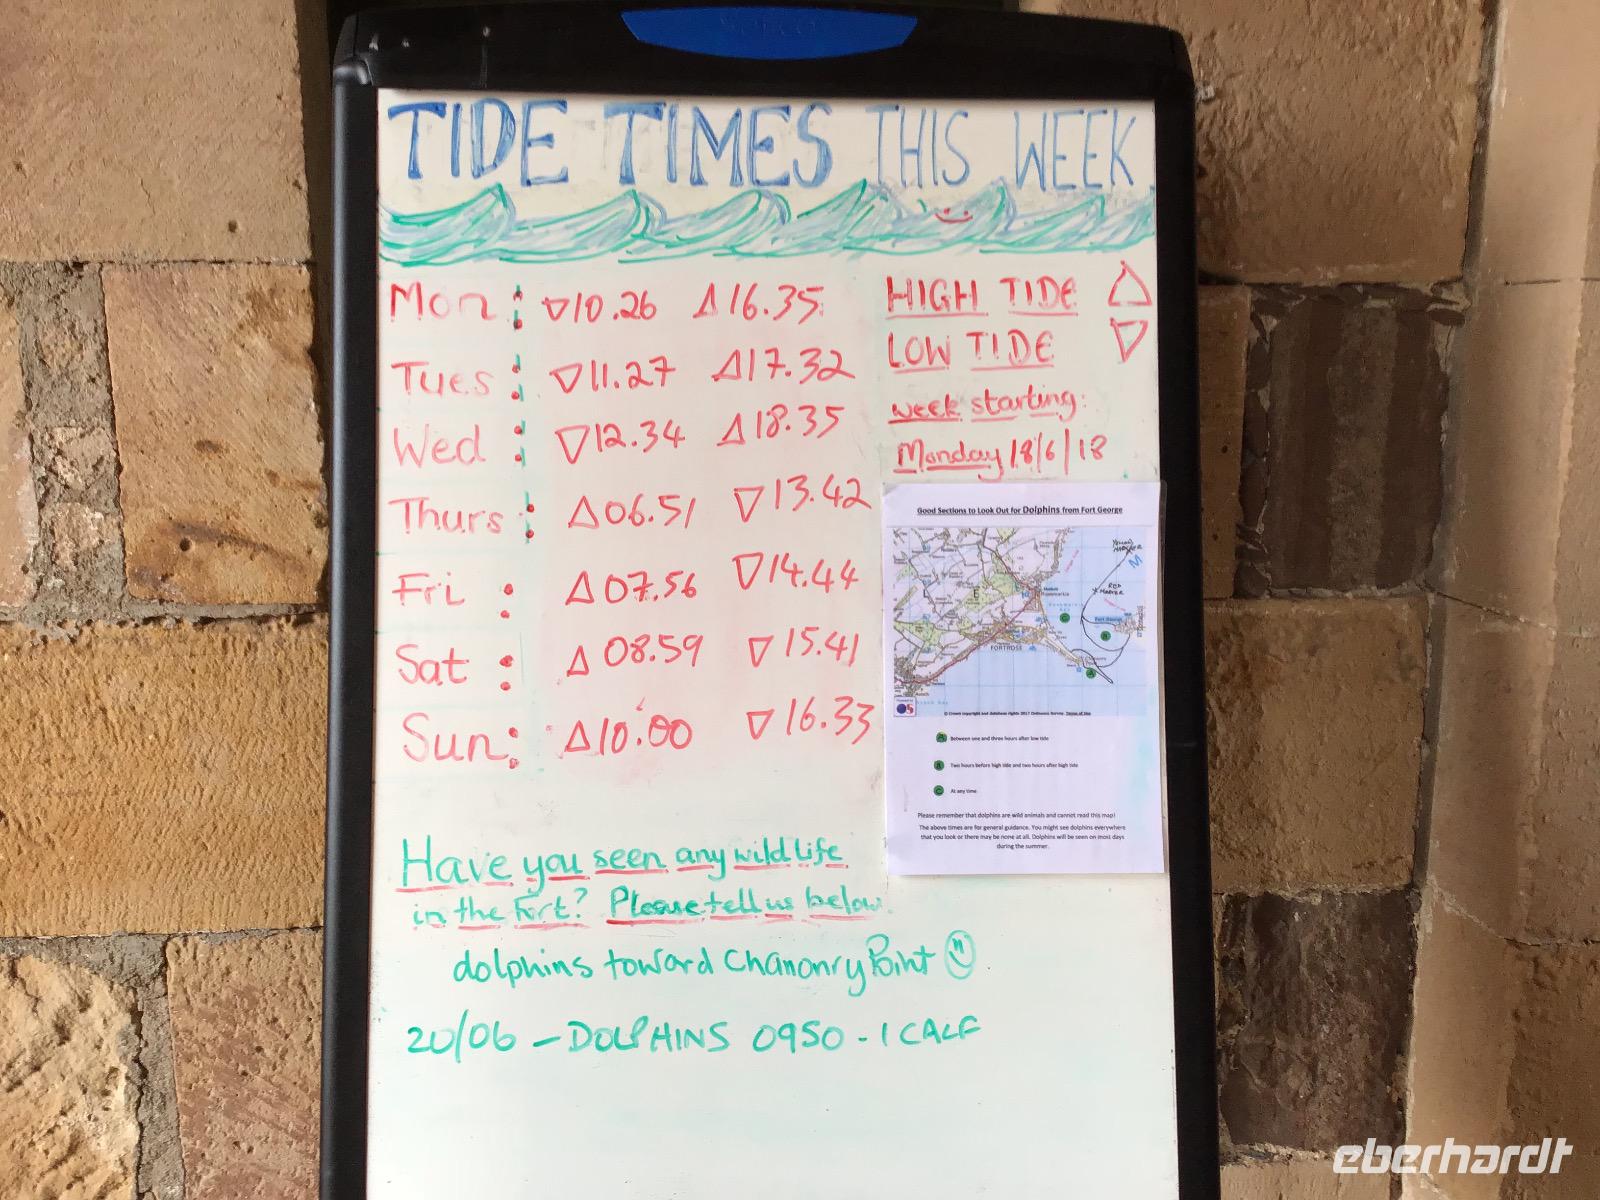 TIDE TIMES THIS WEEK
Mon : ▽10.26 △16.35
Tues : ▽11.27 △17.32
Wed : ▽12.34 △18.35
Thurs : △06.51 ▽13.42
Fri : △07.56 ▽14.44
Sat : △08.59 ▽15.41
Sun : △10.00 ▽16.33
HIGH TIDE △
LOW TIDE ▽
week starting:
Monday 18/6/18
Good Sections to Look Out for Dolphins from Fort George
YELLOW MARKER
RED MARKER
Fort George
FORTROSE
C
B
A
© Crown copyright and database rights 2017 Ordnance Survey. Terms of Use
A Between one and three hours after low tide
B Two hours before high tide and two hours after high tide
C At any time
Please remember that dolphins are wild animals and cannot read this map!
The above times are for general guidance. You might see dolphins everywhere
that you look or there may be none at all. Dolphins will be seen on most days
during the summer.
Have you seen any wildlife
in the Fort? Please tell us below.
dolphins toward Chanonry Point
20/06 - DOLPHINS 0950 - 1 CALF
eberhardt